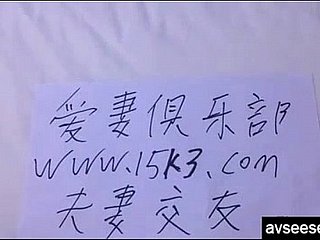 爱妻俱乐部
www.15k3.com
夫妻交友
avseese